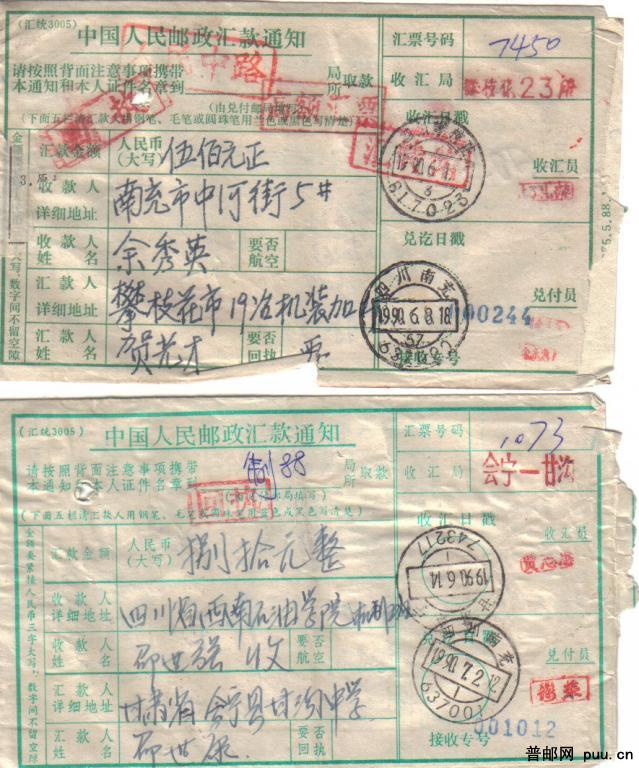 (汇统3005)
中国人民邮政汇款通知
汇票号码
7450
请按照背面注意事项携带
本通知和本人证件名章到
局
所
取款
中路
收汇局
攀枝花23所
(由兑付邮局填写)
(下面五栏请汇款人用钢笔、毛笔或圆珠笔用兰色或黑色写清楚)
收汇日戳
1990.6.1
3
617023
收汇员
汇款金额
人民币
(大写)
伍佰元正
收款人
详细地址
南充市中河街5#
兑讫日戳
收款人
姓名
余秀英
要否
航空
四川南充
1990.6.8.18
兑付员
汇款人
详细地址
攀枝花市19冶机装加
000244
汇款人
姓名
贺芝才
要否
回执
接收专号
大写,数字间不留空隙
(汇统3005)
中国人民邮政汇款通知
汇票号码
1073
请按照背面注意事项携带
本通知和本人证件名章到
制88
局
所
取款
收汇局
会宁—甘沟
(由兑付邮局填写)
(下面五栏请汇款人用钢笔、毛笔或圆珠笔用蓝色或黑色写清楚)
收汇日戳
743217
1990.6.14
收汇员
金额要紧接人民币三字大写,数字间不留空隙
汇款金额
人民币
(大写)
捌拾元整
收款人
详细地址
四川省西南石油学院机制88
兑讫日戳
南充
1990.7.2.12
637001
收款人
姓名
邵世强 收
要否
航空
兑付员
汇款人
详细地址
甘肃省会宁县甘沟中学
001012
汇款人
姓名
邵世原
要否
回执
接收专号
普邮网 puu.cn